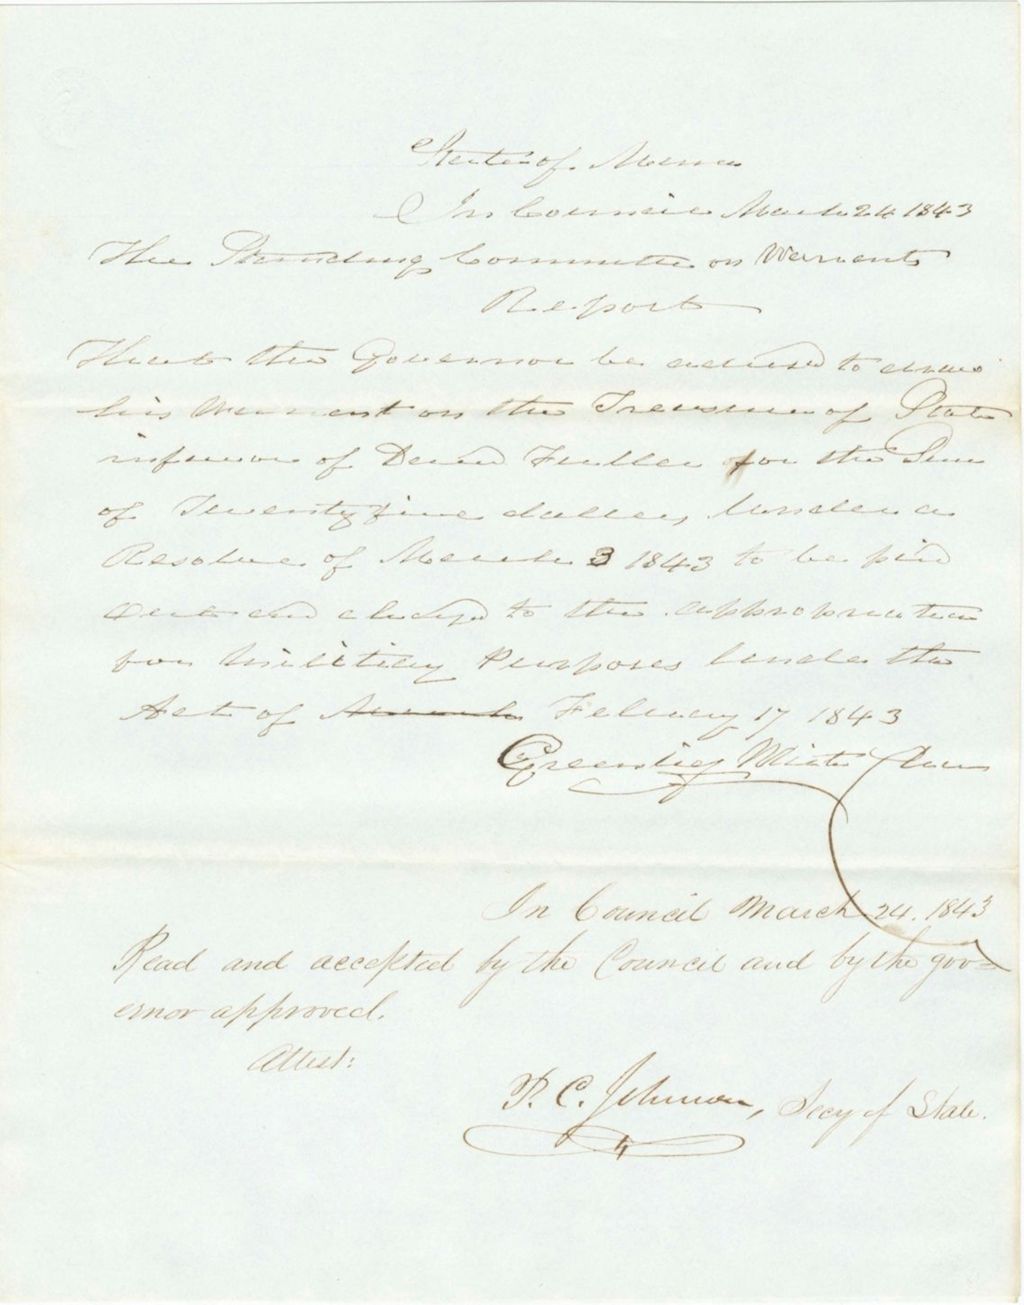 State of Maine
In Council March 24 1843
The Standing Committee on Warrants
Report
That the Governor be advised to draw
his Warrant on the Treasurer of State
in favor of David Fuller for the Sum
of Twenty five dollars, Under a
Resolve of March 3 1843 to be paid
out and charged to the appropriation
for Military Purposes Under the
Act of March February 17 1843
Greenlief White Chair
In Council March 24. 1843
Read and accepted by the Council and by the gov=
ernor approved.
Attest:
P. C. Johnson, Secy of State.